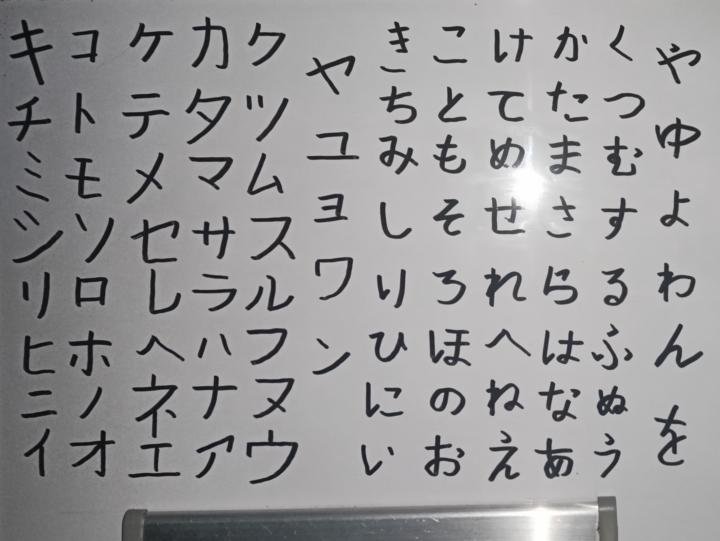 キコケカクヤきこけかくや
チトテタツちとてたつ
ミモメマムユみもめまむゆ
シソセサスヨしそせさすよ
リロレラルワりろれらるわ
ヒホヘハフンひほへはふん
ニノネナヌにのねなぬ
イオエアウいおえあうを